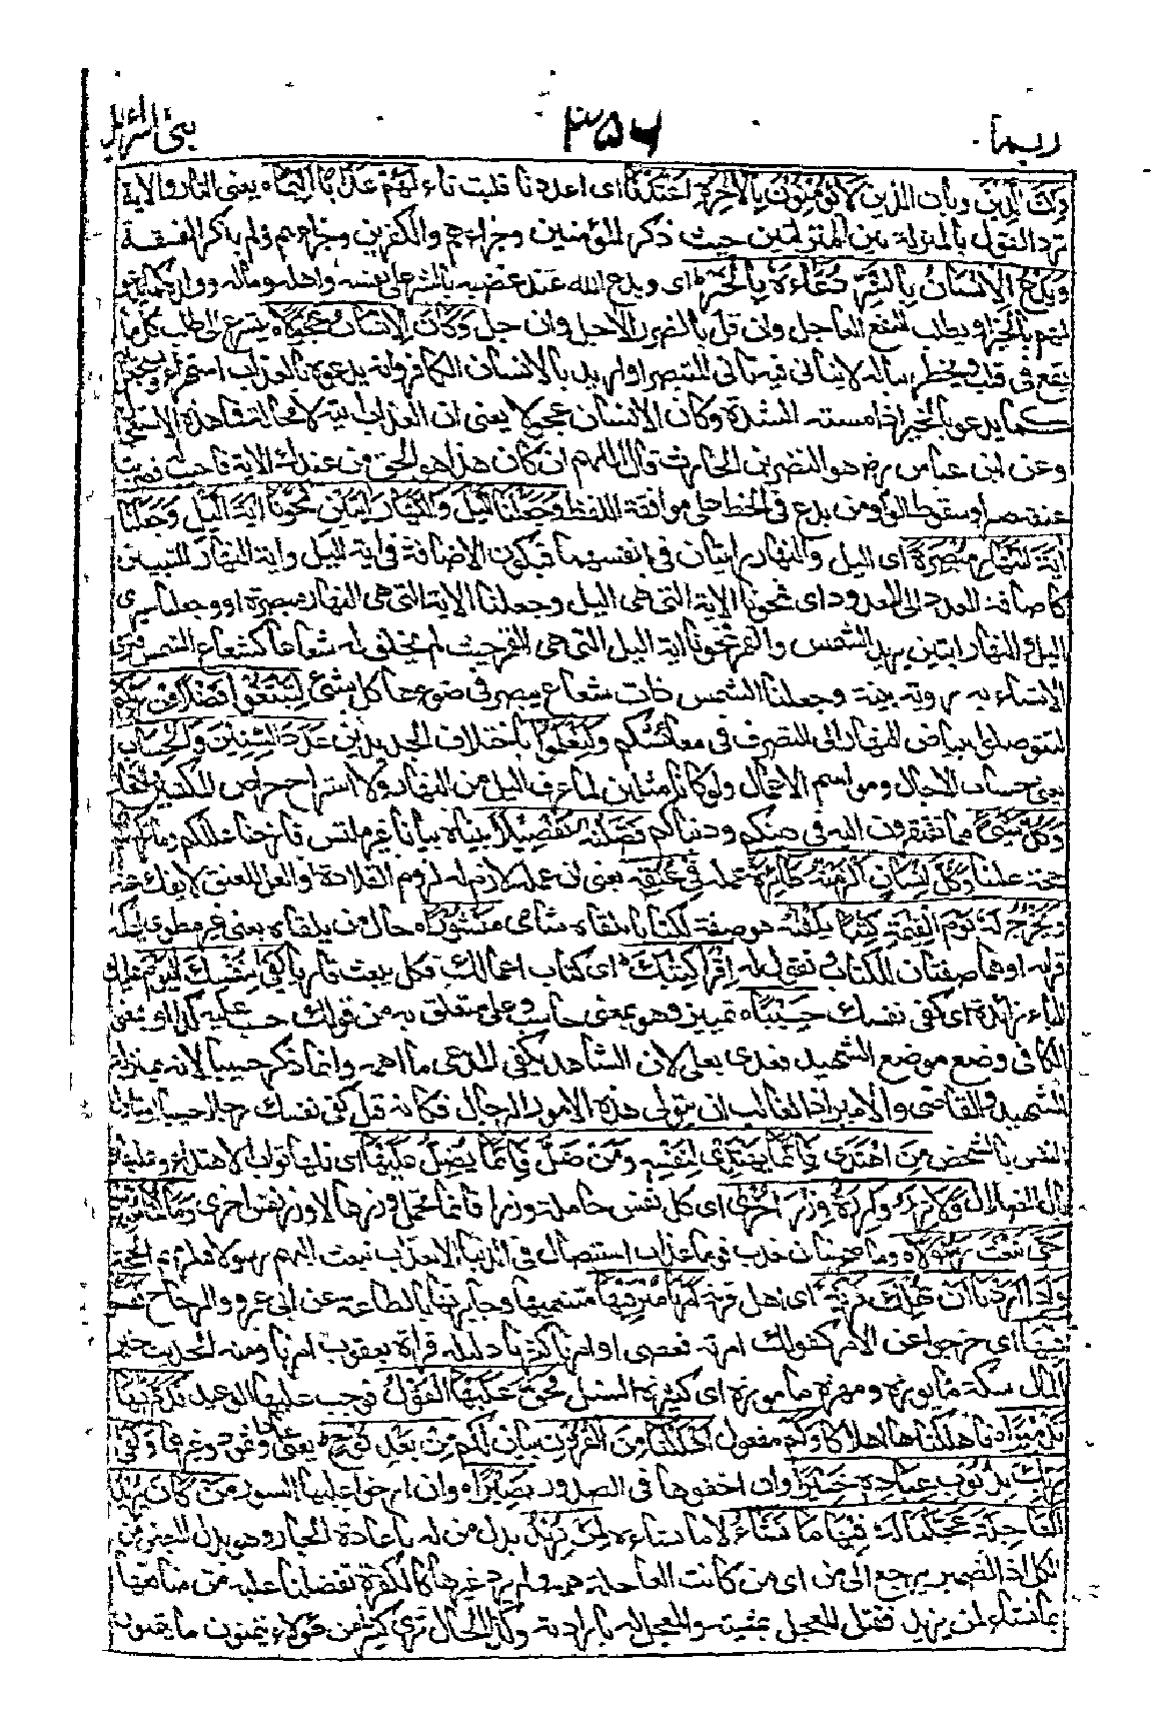 ربما ٣٥٦ بنى اسرائيل
وَاَنَّ الَّذِيْنَ وبان الذين لَا يُؤْمِنُوْنَ بِالْاٰخِرَةِ اَعْتَدْنَا اى اعددنا قلبت تاء لَهُمْ عَذَابًا اَلِيْمًا يعنى النار والاية
ترد القول بالمنزلة بين المنزلتين حيث ذكر المؤمنين وجزاءهم والكفرين وجزاءهم ولم يذكر الفسقة
وَيَدْعُ الْاِنْسَانُ بِالشَّرِّ دُعَآءَهٗ بِالْخَيْرِ اى ويدع الله عند غضبه بالشر على نفسه واهله وماله وولده كما يدعو
لهم بالخير او يطلب النفع العاجل وان قل بالضرر الآجل وان جل وَكَانَ الْاِنْسَانُ عَجُوْلًا يتسرع الى طلب كل ما
يقع فى قلبه ويخطر بباله لا يتأنى فيه تأنى المتبصر او اريد بالانسان الكافر وانه يدعوه بالعذاب استهزاء
كما يدعو بالخير اذا مسته الشدة وكان الانسان عجولا يعنى ان العذاب اتيه لا محالة فما هذه الاستعجال
وعن ابن عباس رض هو النضر بن الحارث قال اللهم ان كان هذا هو الحق من عندك الاية فاجيب له فضربت
عنقه صبرا وسقوط الواو من يدع فى الخط على موافقة اللفظ وَجَعَلْنَا الَّيْلَ وَالنَّهَارَ اٰيَتَيْنِ فَمَحَوْنَا اٰيَةَ الَّيْلِ وَجَعَلْنَا
اٰيَةَ النَّهَارِ مُبْصِرَةً اى اليل والنهار ايتان فى انفسهما فيكون الاضافة فى اية اليل واية النهار للتبيين
كاضافة العدد الى المعدود اى فمحونا الاية التى هى اليل وجعلنا الاية التى هى النهار مبصرة او وجعلنا نيرى
اليل والنهار ايتين يريد الشمس والقمر فمحونا اية اليل التى هى القمر حيث لم يخلق له شعاعا كشعاع الشمس فترى
الاشياء به رؤية بينة وجعلنا الشمس ذات شعاع يبصر فى ضوءها كل شئ لِتَبْتَغُوْا فَضْلًا مِّنْ رَّبِّكُمْ
لتتوصلوا ببياض النهار الى التصرف فى معائشكم وَلِتَعْلَمُوْا باختلاف الجديدين عَدَدَ السِّنِيْنَ وَالْحِسَابَ
يعنى حساب الاجال ومواسم الاعمال ولو كانا مثلين لما عرف اليل من النهار ولا استراح حراص المكتسبين والتجار
وَكُلَّ شَيْءٍ مما تفتقرون اليه فى دينكم ودنياكم فَصَّلْنٰهُ تَفْصِيْلًا بيناه بيانا غير ملتبس فازحنا عللكم وما تركنا لكم
حجة علينا وَكُلَّ اِنْسَانٍ اَلْزَمْنٰهُ طٰٓئِرَهٗ عمله فِيْ عُنُقِهٖ يعنى ان عمله لازم له لزوم القلادة او الغل للعنق لا يفك عنه
وَنُخْرِجُ لَهٗ يَوْمَ الْقِيٰمَةِ كِتٰبًا يَّلْقٰىهُ هو صفة لكتابا يلقاه شامى مَنْشُوْرًا حال من يلقاه يعنى غير مطوى ليمكنه
قراءته او هما صفتان للكتاب ونقول له اِقْرَاْ كِتٰبَكَ اى كتاب اعمالك وكل يبعث قاريا كَفٰى بِنَفْسِكَ الْيَوْمَ عَلَيْكَ
الباء زائدة اى كفى نفسك حَسِيْبًا تمييز وهو بمعنى حاسب وعلى متعلق به من قولك حسب عليه كذا او بمعنى
الكافى وضع موضع الشهيد فعدى بعلى لان الشاهد يكفى المدعى ما اهمه وانما ذكر حسيبا لانه بمنزلة
الشهيد والقاضى والامير اذ الغالب ان يتولى هذه الامور الرجال فكانه قيل كفى نفسك رجلا حسيبا او تاول
النفس بالشخص مَنِ اهْتَدٰى فَاِنَّمَا يَهْتَدِيْ لِنَفْسِهٖ وَمَنْ ضَلَّ فَاِنَّمَا يَضِلُّ عَلَيْهَا اى فلها ثواب الاهتداء وعليها
وبال الضلال وَلَا تَزِرُ وَازِرَةٌ وِّزْرَ اُخْرٰى اى كل نفس حاملة وزرا فانما تحمل وزرها لا وزر نفس اخرى وَمَا كُنَّا مُعَذِّبِيْنَ
حَتّٰى نَبْعَثَ رَسُوْلًا وما صح منا ان نعذب قوما عذاب استيصال فى الدنيا الا بعد ان نبعث اليهم رسولا فلزمهم الحجة
وَاِذَآ اَرَدْنَآ اَنْ نُّهْلِكَ قَرْيَةً اى اهل قرية اَمَرْنَا مُتْرَفِيْهَا متنعميها وجبابرتها بالطاعة عن ابى عمرو والزجاج فَفَسَقُوْا
فِيْهَا اى خرجوا عن الامر كقولك امرته فعصى او امرنا كثرنا دليله قراءة يعقوب امرنا ومنه الحديث خير
المال سكة مابورة ومهرة مامورة اى كثيرة النسل فَحَقَّ عَلَيْهَا الْقَوْلُ فوجب عليها الوعيد فَدَمَّرْنٰهَا
تَدْمِيْرًا فاهلكناها اهلاكا وَكَمْ مفعول اَهْلَكْنَا مِنَ الْقُرُوْنِ بيان لكم مِنْ بَعْدِ نُوْحٍ يعنى عادا وثمود وغيرهما وَكَفٰى
بِرَبِّكَ بِذُنُوْبِ عِبَادِهٖ خَبِيْرًا وان اخفوها فى الصدور بَصِيْرًا وان ارخوا عليها الستور مَنْ كَانَ يُرِيْدُ
الْعَاجِلَةَ عَجَّلْنَا لَهٗ فِيْهَا مَا نَشَآءُ لا ما يشاء لِمَنْ نُّرِيْدُ بدل من له باعادة الجار وهو بدل البعض من
الكل اذ الضمير يرجع الى من اى من كانت العاجلة همه ولم يرد غيرها كالكفرة تفضلنا عليه من منافعها
بما نشاء لمن نريد فقيد المعجل بمشيته والمعجل له بارادته وهكذا الحال ترى كثيرا من هؤلاء يتمنون ما يتمنون